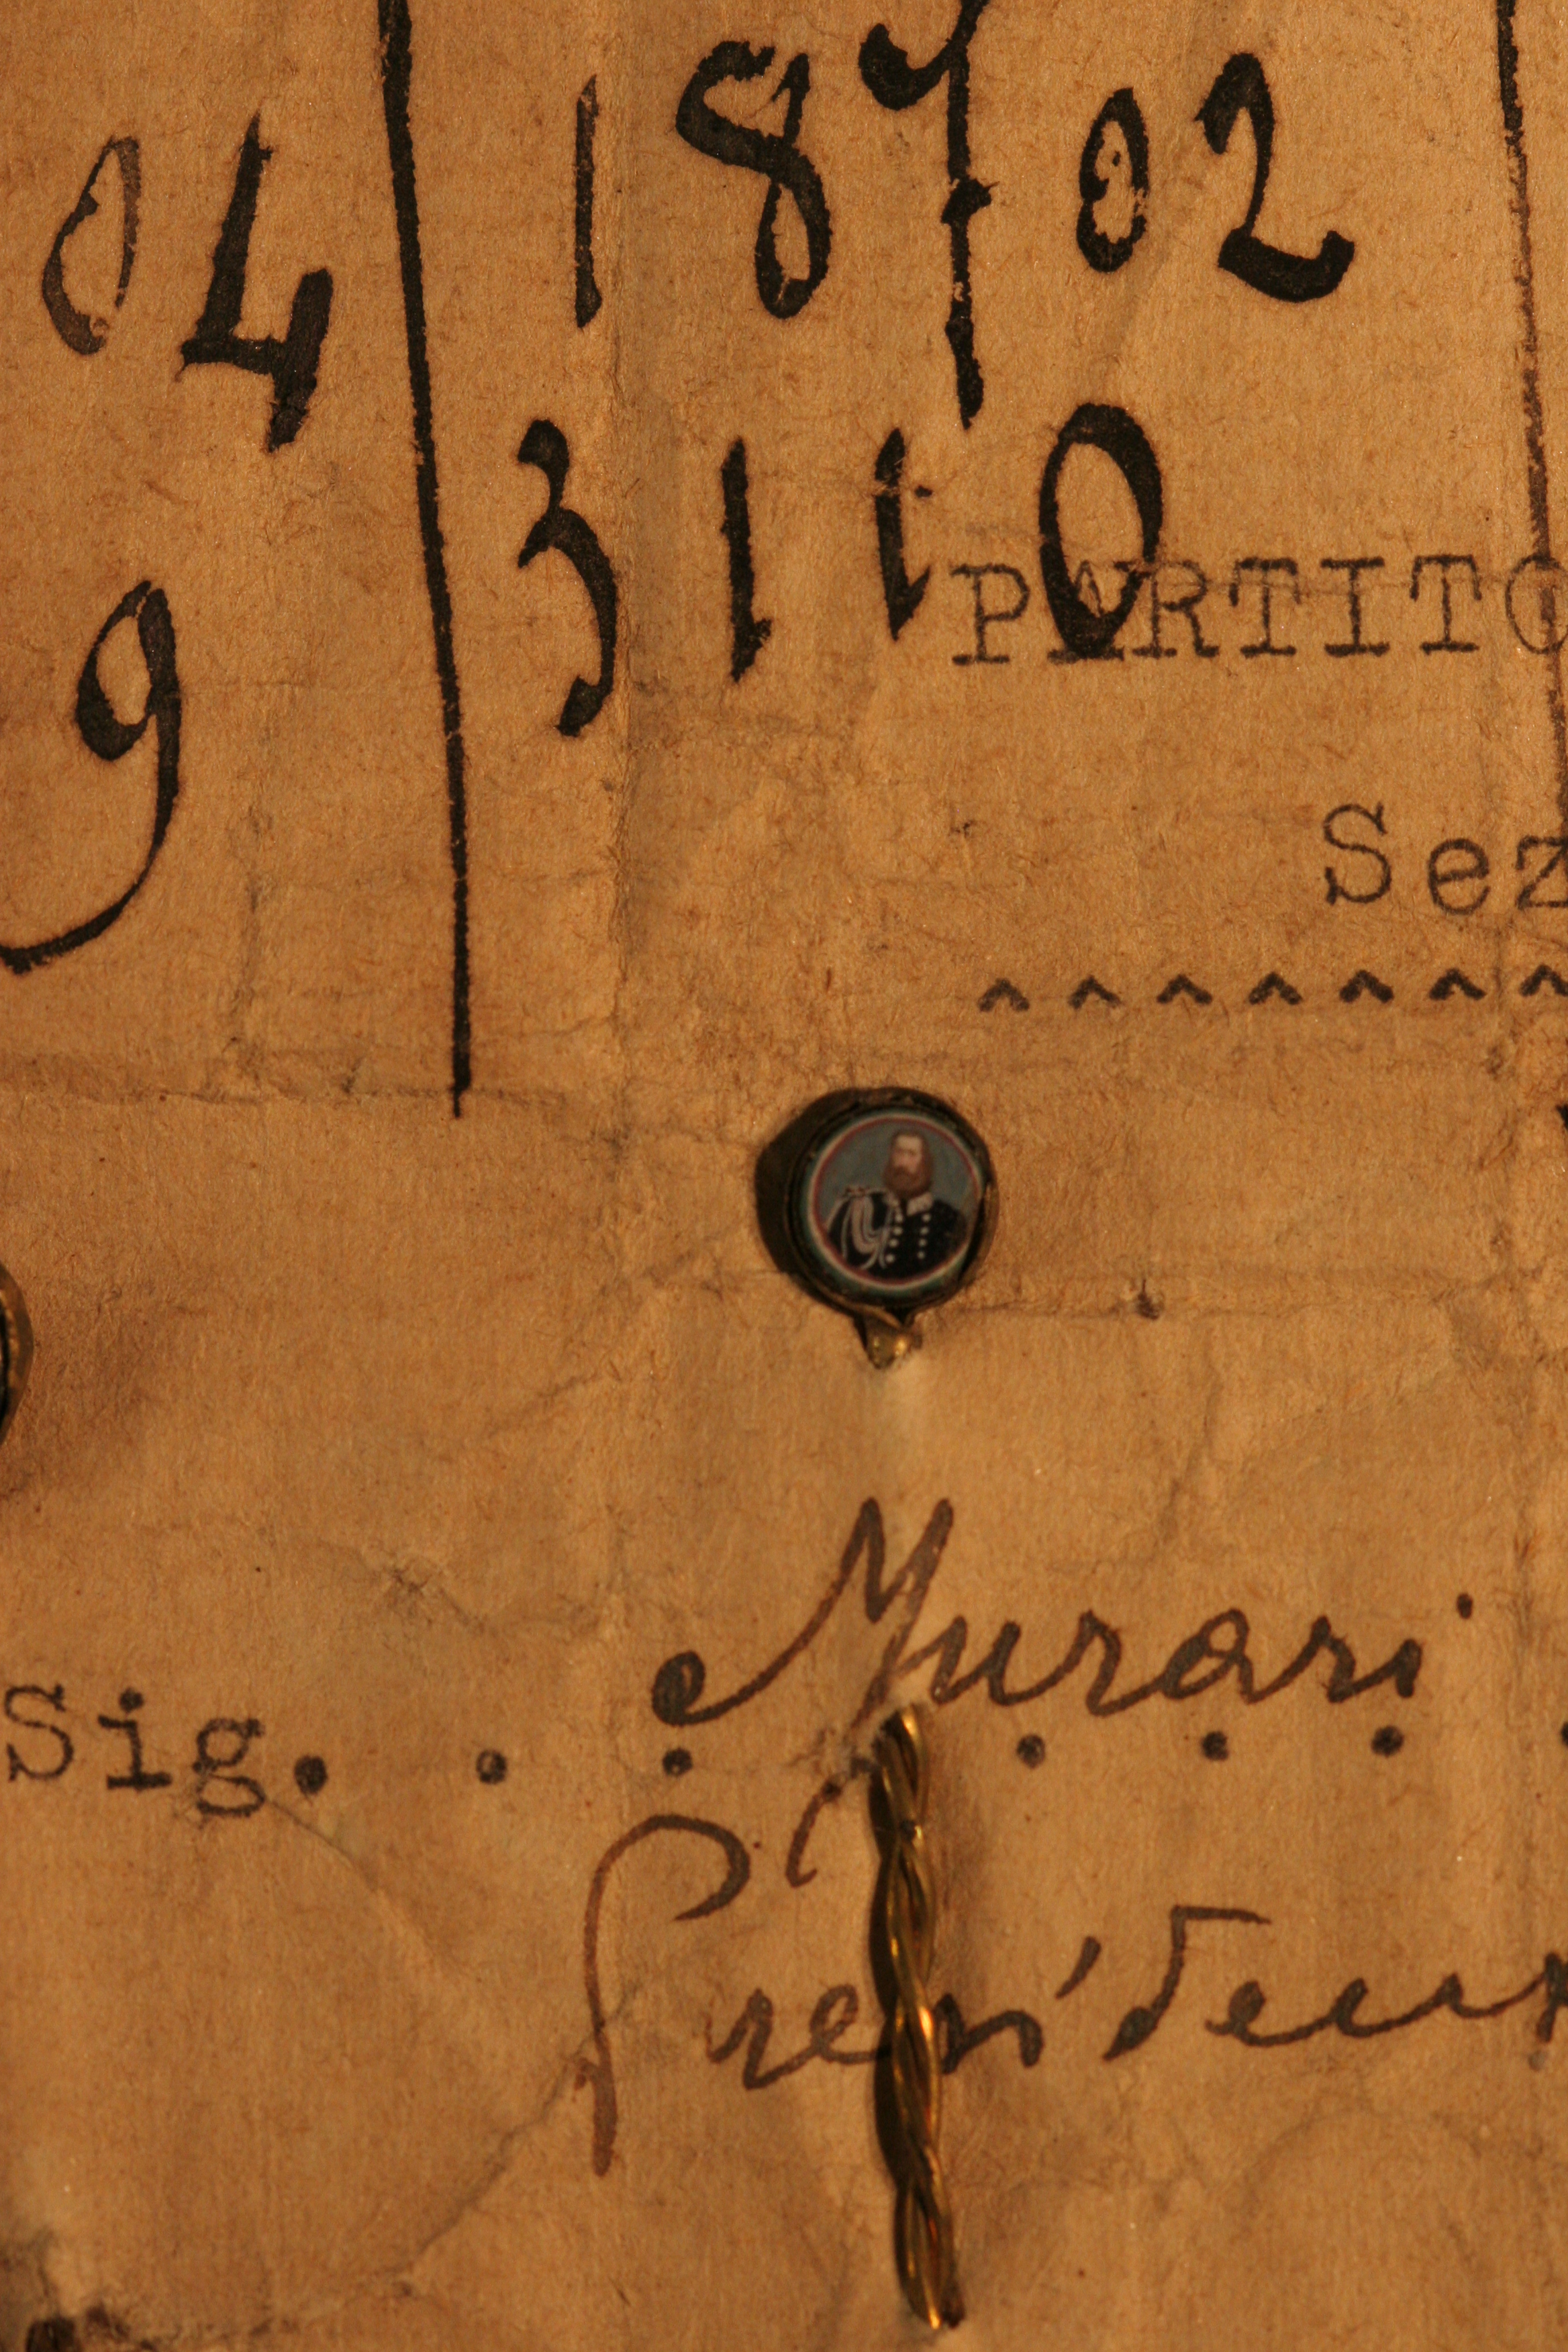 04 18702
9 3110
PARTITO
Sez
^^^^^^^
Murari
Sig. . . . . . .
Presiden